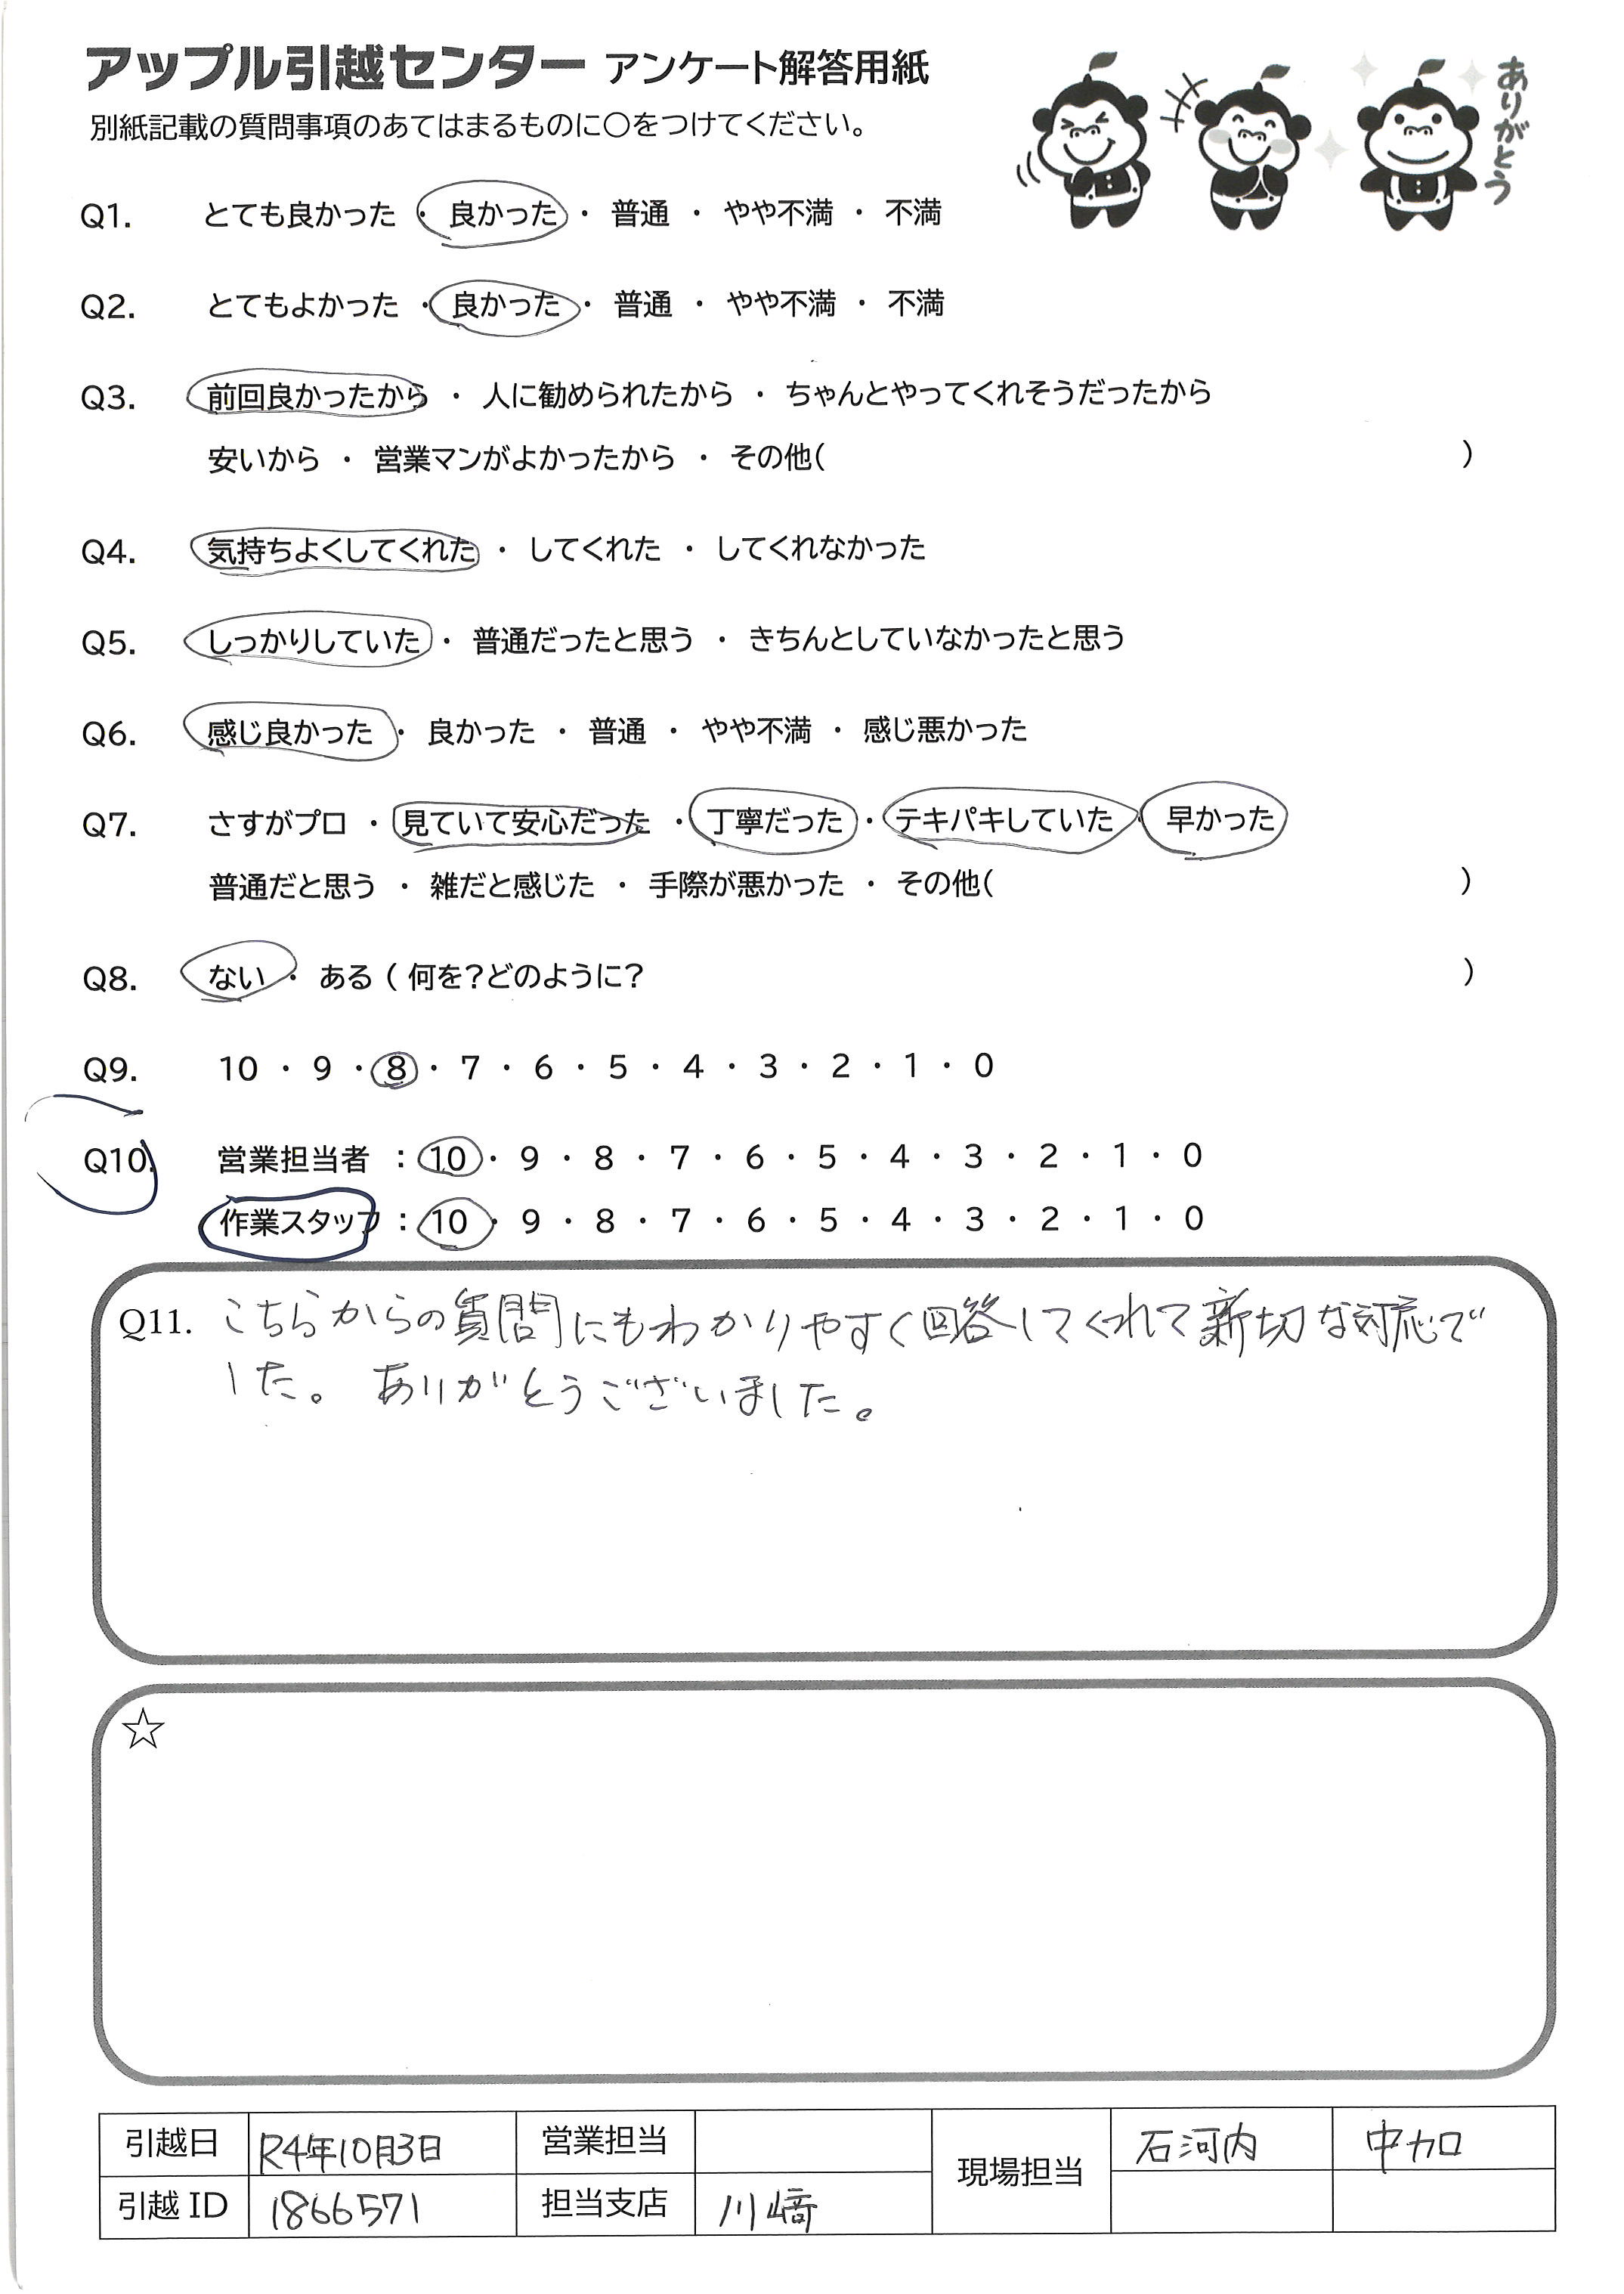 アップル引越センター アンケート解答用紙
ありがとう
別紙記載の質問事項のあてはまるものに○をつけてください。
Q1. とても良かった ・ 良かった ・ 普通 ・ やや不満 ・ 不満
Q2. とてもよかった ・ 良かった ・ 普通 ・ やや不満 ・ 不満
Q3. 前回良かったから ・ 人に勧められたから ・ ちゃんとやってくれそうだったから
安いから ・ 営業マンがよかったから ・ その他( )
Q4. 気持ちよくしてくれた ・ してくれた ・ してくれなかった
Q5. しっかりしていた ・ 普通だったと思う ・ きちんとしていなかったと思う
Q6. 感じ良かった ・ 良かった ・ 普通 ・ やや不満 ・ 感じ悪かった
Q7. さすがプロ ・ 見ていて安心だった ・ 丁寧だった ・ テキパキしていた ・ 早かった
普通だと思う ・ 雑だと感じた ・ 手際が悪かった ・ その他( )
Q8. ない ・ ある ( 何を?どのように? )
Q9. 10 ・ 9 ・ 8 ・ 7 ・ 6 ・ 5 ・ 4 ・ 3 ・ 2 ・ 1 ・ 0
Q10. 営業担当者 : 10 ・ 9 ・ 8 ・ 7 ・ 6 ・ 5 ・ 4 ・ 3 ・ 2 ・ 1 ・ 0
作業スタッフ : 10 ・ 9 ・ 8 ・ 7 ・ 6 ・ 5 ・ 4 ・ 3 ・ 2 ・ 1 ・ 0
Q11. こちらからの質問にもわかりやすく回答してくれて親切な対応で
した。ありがとうございました。
☆
引越日 R4年10月3日 営業担当 現場担当 石河内 中加
引越ID 1866571 担当支店 川﨑